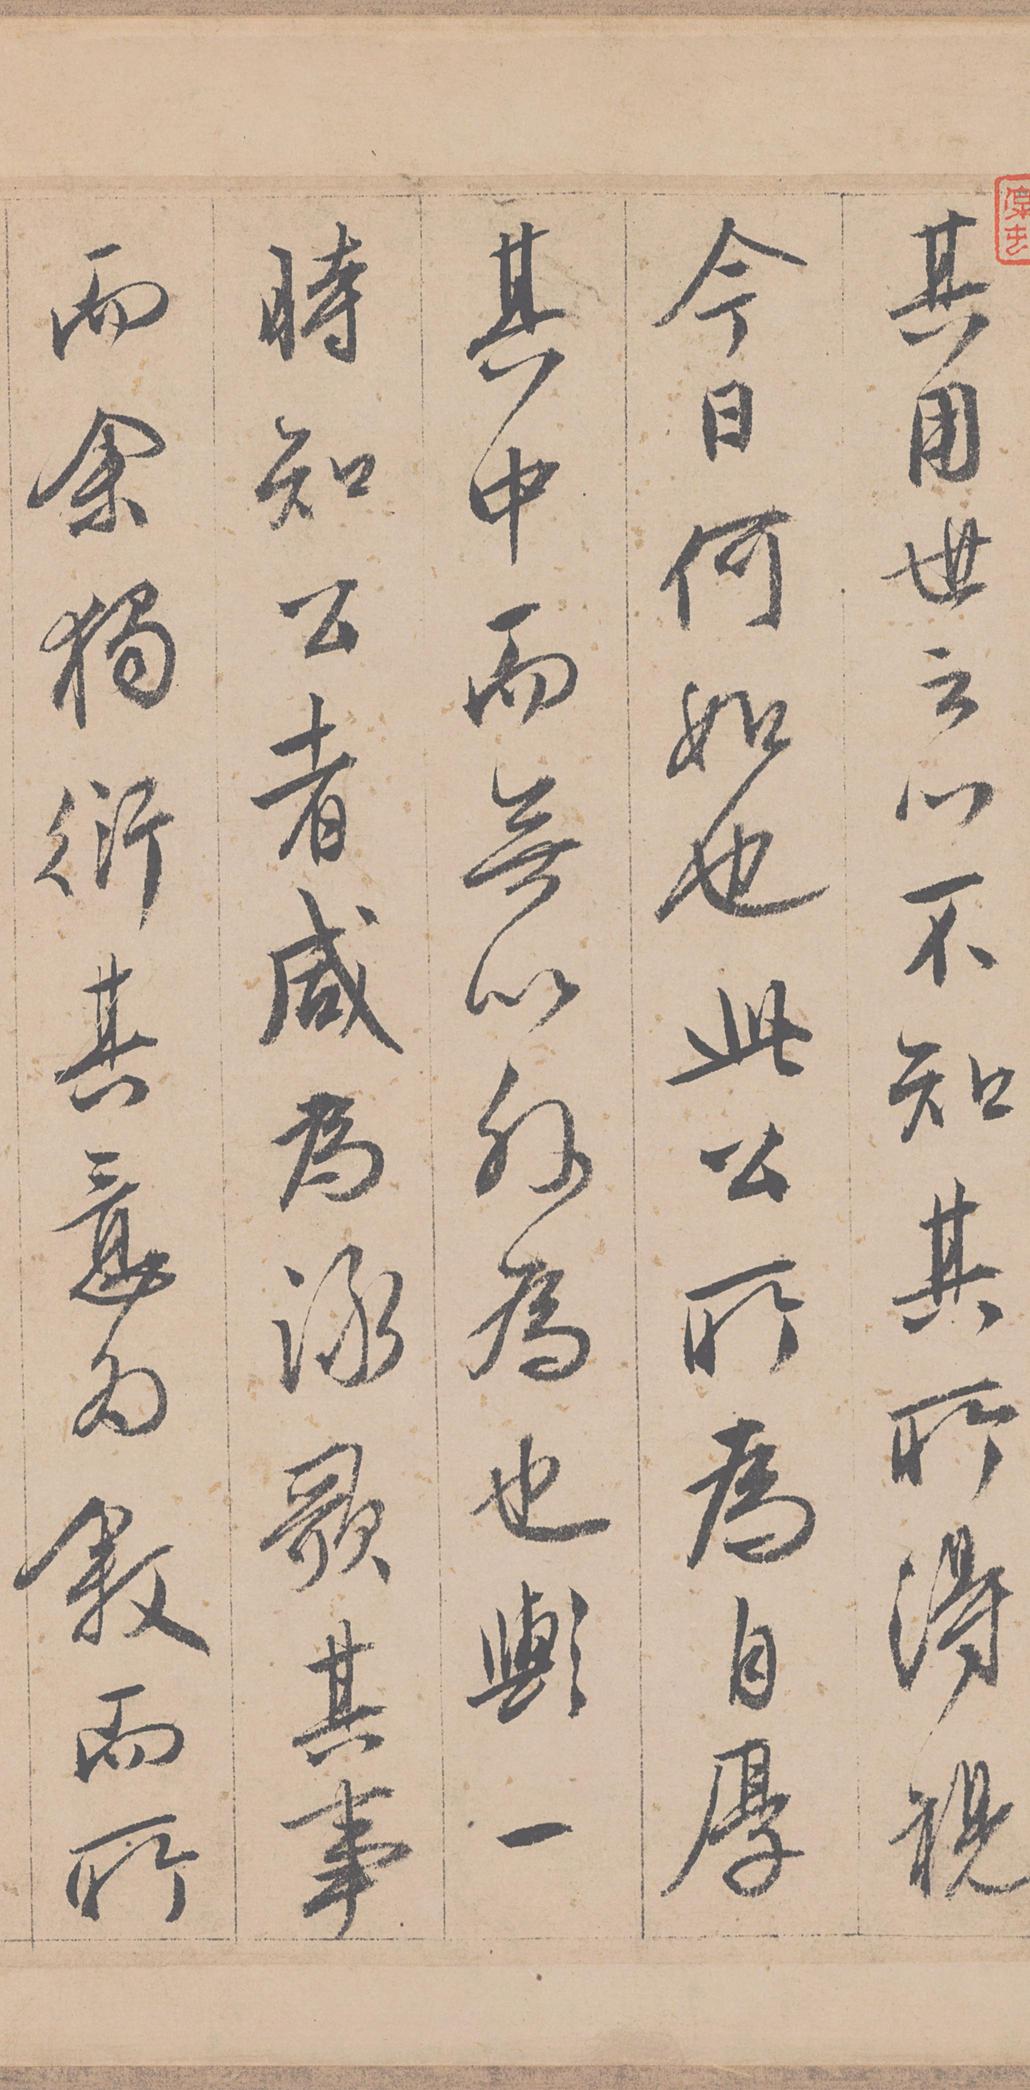 其用世之心不知其所得視
今日何如也此公所為自厚
其中而無以外為也輿一
時知公者咸為詠歌其事
而余獨衍其意為敘而所